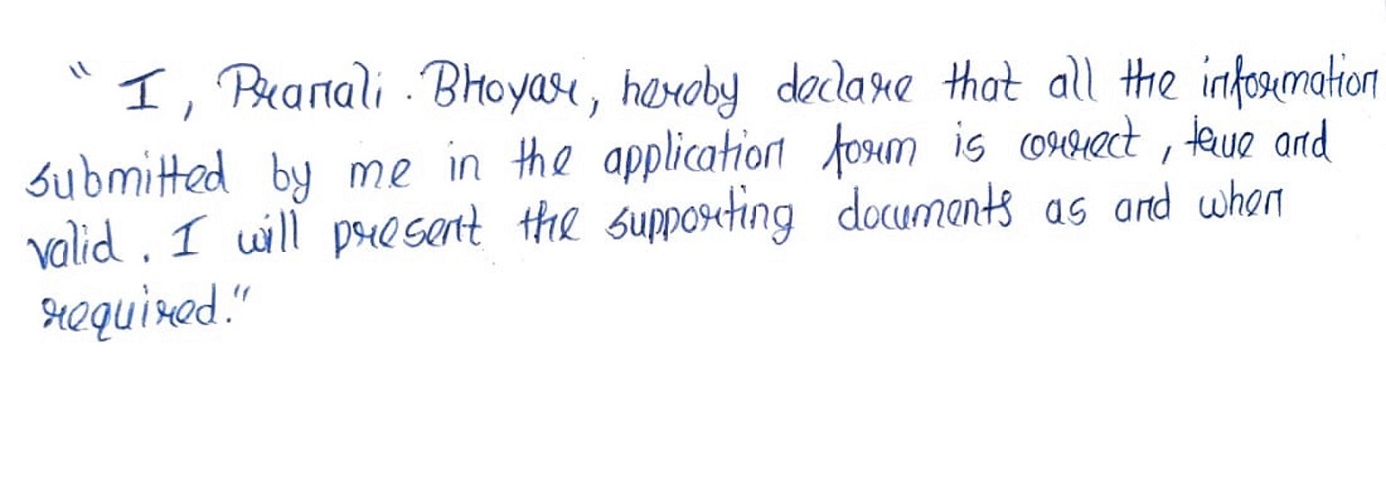 " I, Pranali . Bhoyar, hereby declare that all the information
submitted by me in the application form is correct, true and
valid. I will present the supporting documents as and when
required."